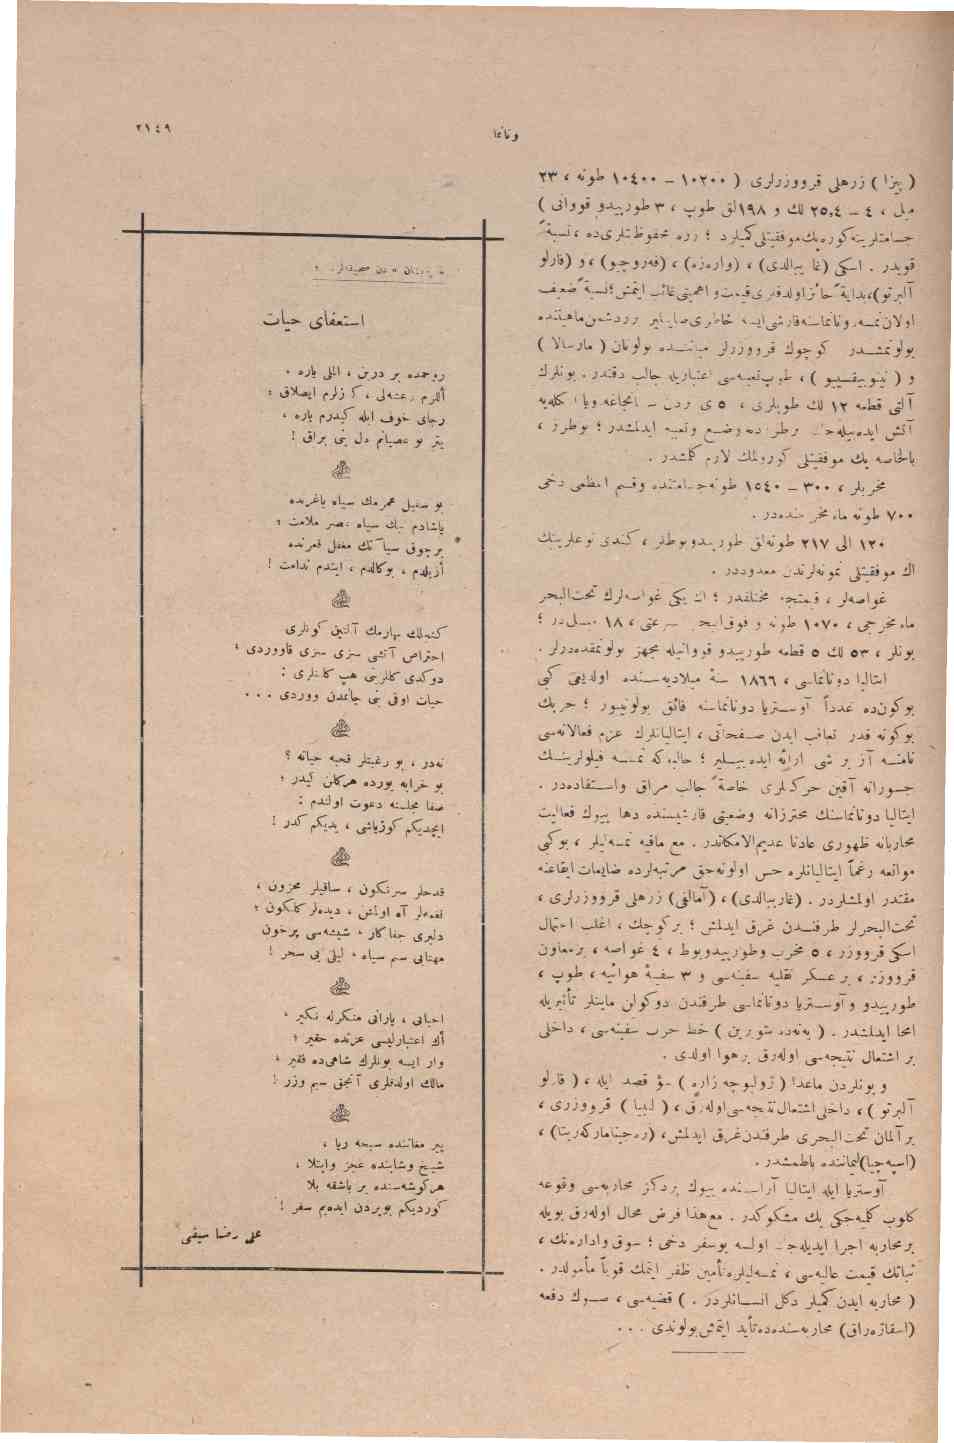 ٢١٤٩
دونانما
( پیزا ) زرهلی قرووزرلری ( ١٠٢٠٠ – ١٠٤٠٠ طونه ، ٢٣
میل ، ٤ – ٢٥،٤ لك و ١٩٨لق طوپ ، ٣ طورپیدو قووانی )
جسامتلرینه كوره پك موفقیتلی كمیلردر ؛ زره محفوظتلری ده ، نسبةً
قویدر . اسكی (غا یبالدی) ، (وارەزە) ، (فەروچیو) ، و (قارلو
آلبرتو)، بدایةً حائز اولدقلری قیمت و اهمیتی غائب ایتمش ؛ نسبةً ضعیف
اولان نمسه دونانماسنه قارشی ایسه خاطری صاییلیر بر دشمن ماهیتنده
بولونمشدر كوچوك قرووزرلر میاننده بولونان ( مارسالا )
و ( نینو بیقسیو ) ، طوپ تعبیه‌سی اعتباریله جالب دقتدر . بونلرك
آلتی قطعه ١٢ لك طوپلری ، ٥ ی بردن – باغه ویا اسكله‌یه
آتش ایده‌بیله‌جك بر طرزده وضع وتعبیه ایدلمشدر ؛ بوطرز ،
بالخاصه پك موفقیتلی كورولمك لازم كلمشدر .
مخربلر ، ٣٠٠ – ١٥٤٠ طونه جسامتنده وقسم اعظمی دخی
٧٠٠ طونه ماء مخرجنده‌در .
١٢٠ الی ٢١٧ طونه‌لق طورپیدوبوطلر ، كندی نوعلرینك
اك موفقیتلی نمونه‌لرندن معدوددر .
غواصه‌لر ، قیمتجه مختلفدر ؛ اك یكی غواصه‌لرك تحت‌البحر
ماء مخرجی ، ١٠٧٠ طونه و فوق‌البحر سرعتی ، ١٨ میل‌در ؛
بونلر ، ٥٣ لك ٥ قطعه طورپیدو قووانیله مجهز بولونمقده‌درلر .
ایتالیا دونانماسی ، ١٨٦٦ سنۀ میلادیه‌سنده اولدیغی كبی
بوكون‌ده عدداً آوستریا دونانماسنه فائق بولونیور ؛ حربك
بوكونه قدر تعاقب ایدن صفحاتی ، ایتالیانلرك عزم فعالانه‌سی
نامنه آز بر شی ارائه ایده‌بیلیر ؛ حالبوكه نمسه فیلولرینك
جسورانه آقین حركەلری خاصةً جالب مراق واستفاده‌در .
ایتالیا دونانماسنك محترزانه وضعیتی قارشیسنده دها بیوك فعالیت
محاربانه ظهوری عادتا عدیم‌الامكاندر . مع مافیه نمسه‌لیلر ، بوكبی
موانعه رغماً ایتالیانلره حس اولونه‌جق مرتبه‌لرده ضایعات ایقاعنه
مقتدر اولمشلردر . (غاریبالدی) ، (آمالفی) زرهلی قرووزرلری ،
تحت‌البحرلر طرفندن غرق ایدلمش ؛ بر كوچك ، اغلب احتمال
اسكی قرووزر ، ٥ مخرب وطورپیدوبوط ، ٤ غواصه ، بر معاون
قرووزر ، بر عسكر نقلیه سفینه‌سی و ٣ سفینۀ هوائیه ، طوپ ،
طورپیدو و آوستریا دونانماسی طرفندن دوكولن ماینلر تأثیریله
امحا ایدلمشدر . ( بەنەدە تو برین ) خط حرب سفینه‌سی ، داخلی
بر اشتعال نتیجه‌سی اوله‌رق بر هوا اولدی .
و بونلردن ماعدا ( ژولیوچه زاره ) سؤ قصد ایله ، ( قارلو
آلبرتو ) ، داخلی اشتعال نتیجه‌سی اوله‌رق ، ( لیبیا ) قرووزری ،
بر آلمان تحت‌البحری طرفندن غرق ایدلمش ، (ره‌جینا مارگەریتا) ،
(اسپه‌چیا) لیماننده باطمشدر .
آوستریا ایله ایتالیا آراسنده بیوك بر دكز محاربه‌سی وقوعه
كلوب كلمیه‌جكی پك مشكوكدر . مع‌هذا فرض محال اوله‌رق بویله
بر محاربه اجرا ایدیله‌جك اولسه بوسفر دخی ؛ سوق واداره‌نك ،
ثباتك قیمت عالیه‌سی ، نمسه‌لیلره تأمین ظفر ایتمك قویاً مأمولدر .
( محاربه ایدن كمیلر دكل انسانلردر . ) قضیه‌سی ، صوك دفعه
(اسقاژەراق) محاربه‌سنده‌ده تأیید ایتمش بولوندی . . .
استعفای حیات
روحمده بر درین ، اللی یاره ،
اللرم رعشه‌لی ، كوزلرم ایصلاق ؛
رجای خوف ایله كیدرم یاره ،
یتر بو عصیانم دل بنی براق !
بو سفیل عمرمك سیاه باغرنده
یاشادم بیك سیاه عصر ملامت ؛
برچوق سیآتك مغفل قعرنده
أزیلدم ، بوكالدم ، ایتدم ندامت !
كنجلك بهارمك آلتین كونلری
احتراص آتشی سزی سزی قاووردی ؛
دوكدی كللرینی هپ كلبنلری :
حیات اوقی بنی جانمدن ووردی . . .
نه‌در ، بو رغبتلر قحبه حیاته ؟
بو خرابه یورده هركلن كیدر ؛
صفا مجلسنه دعوت اولندم :
ایچدیكم كوزیاشی ، یدیكم كدر !
قدحلر سرنكون ، ساقیلر محزون ،
نغمه‌لر آه اولمش ، دیده‌لر كلكون ؛
دلبری جفاكار ، شیشه‌سی پرخون
مهتابی سم سیاه ، لیلی بی سحر !
احبابی ، یارانی منكرله نكیر ،
أك اعتبارلیسی عزتده حقیر ؛
وار ایسه بونلرك شاهی‌ده فقیر ،
مالك اولدقلری آنجق سیم وزر !
پیر مغاننده سبحه ریا ،
شیخ وشابنده عجز وابتلا ،
هركوشه‌سنده بر باشقه بلا
كوردیكم بویردن ایده‌یم سفر !
علی رضا سیفی